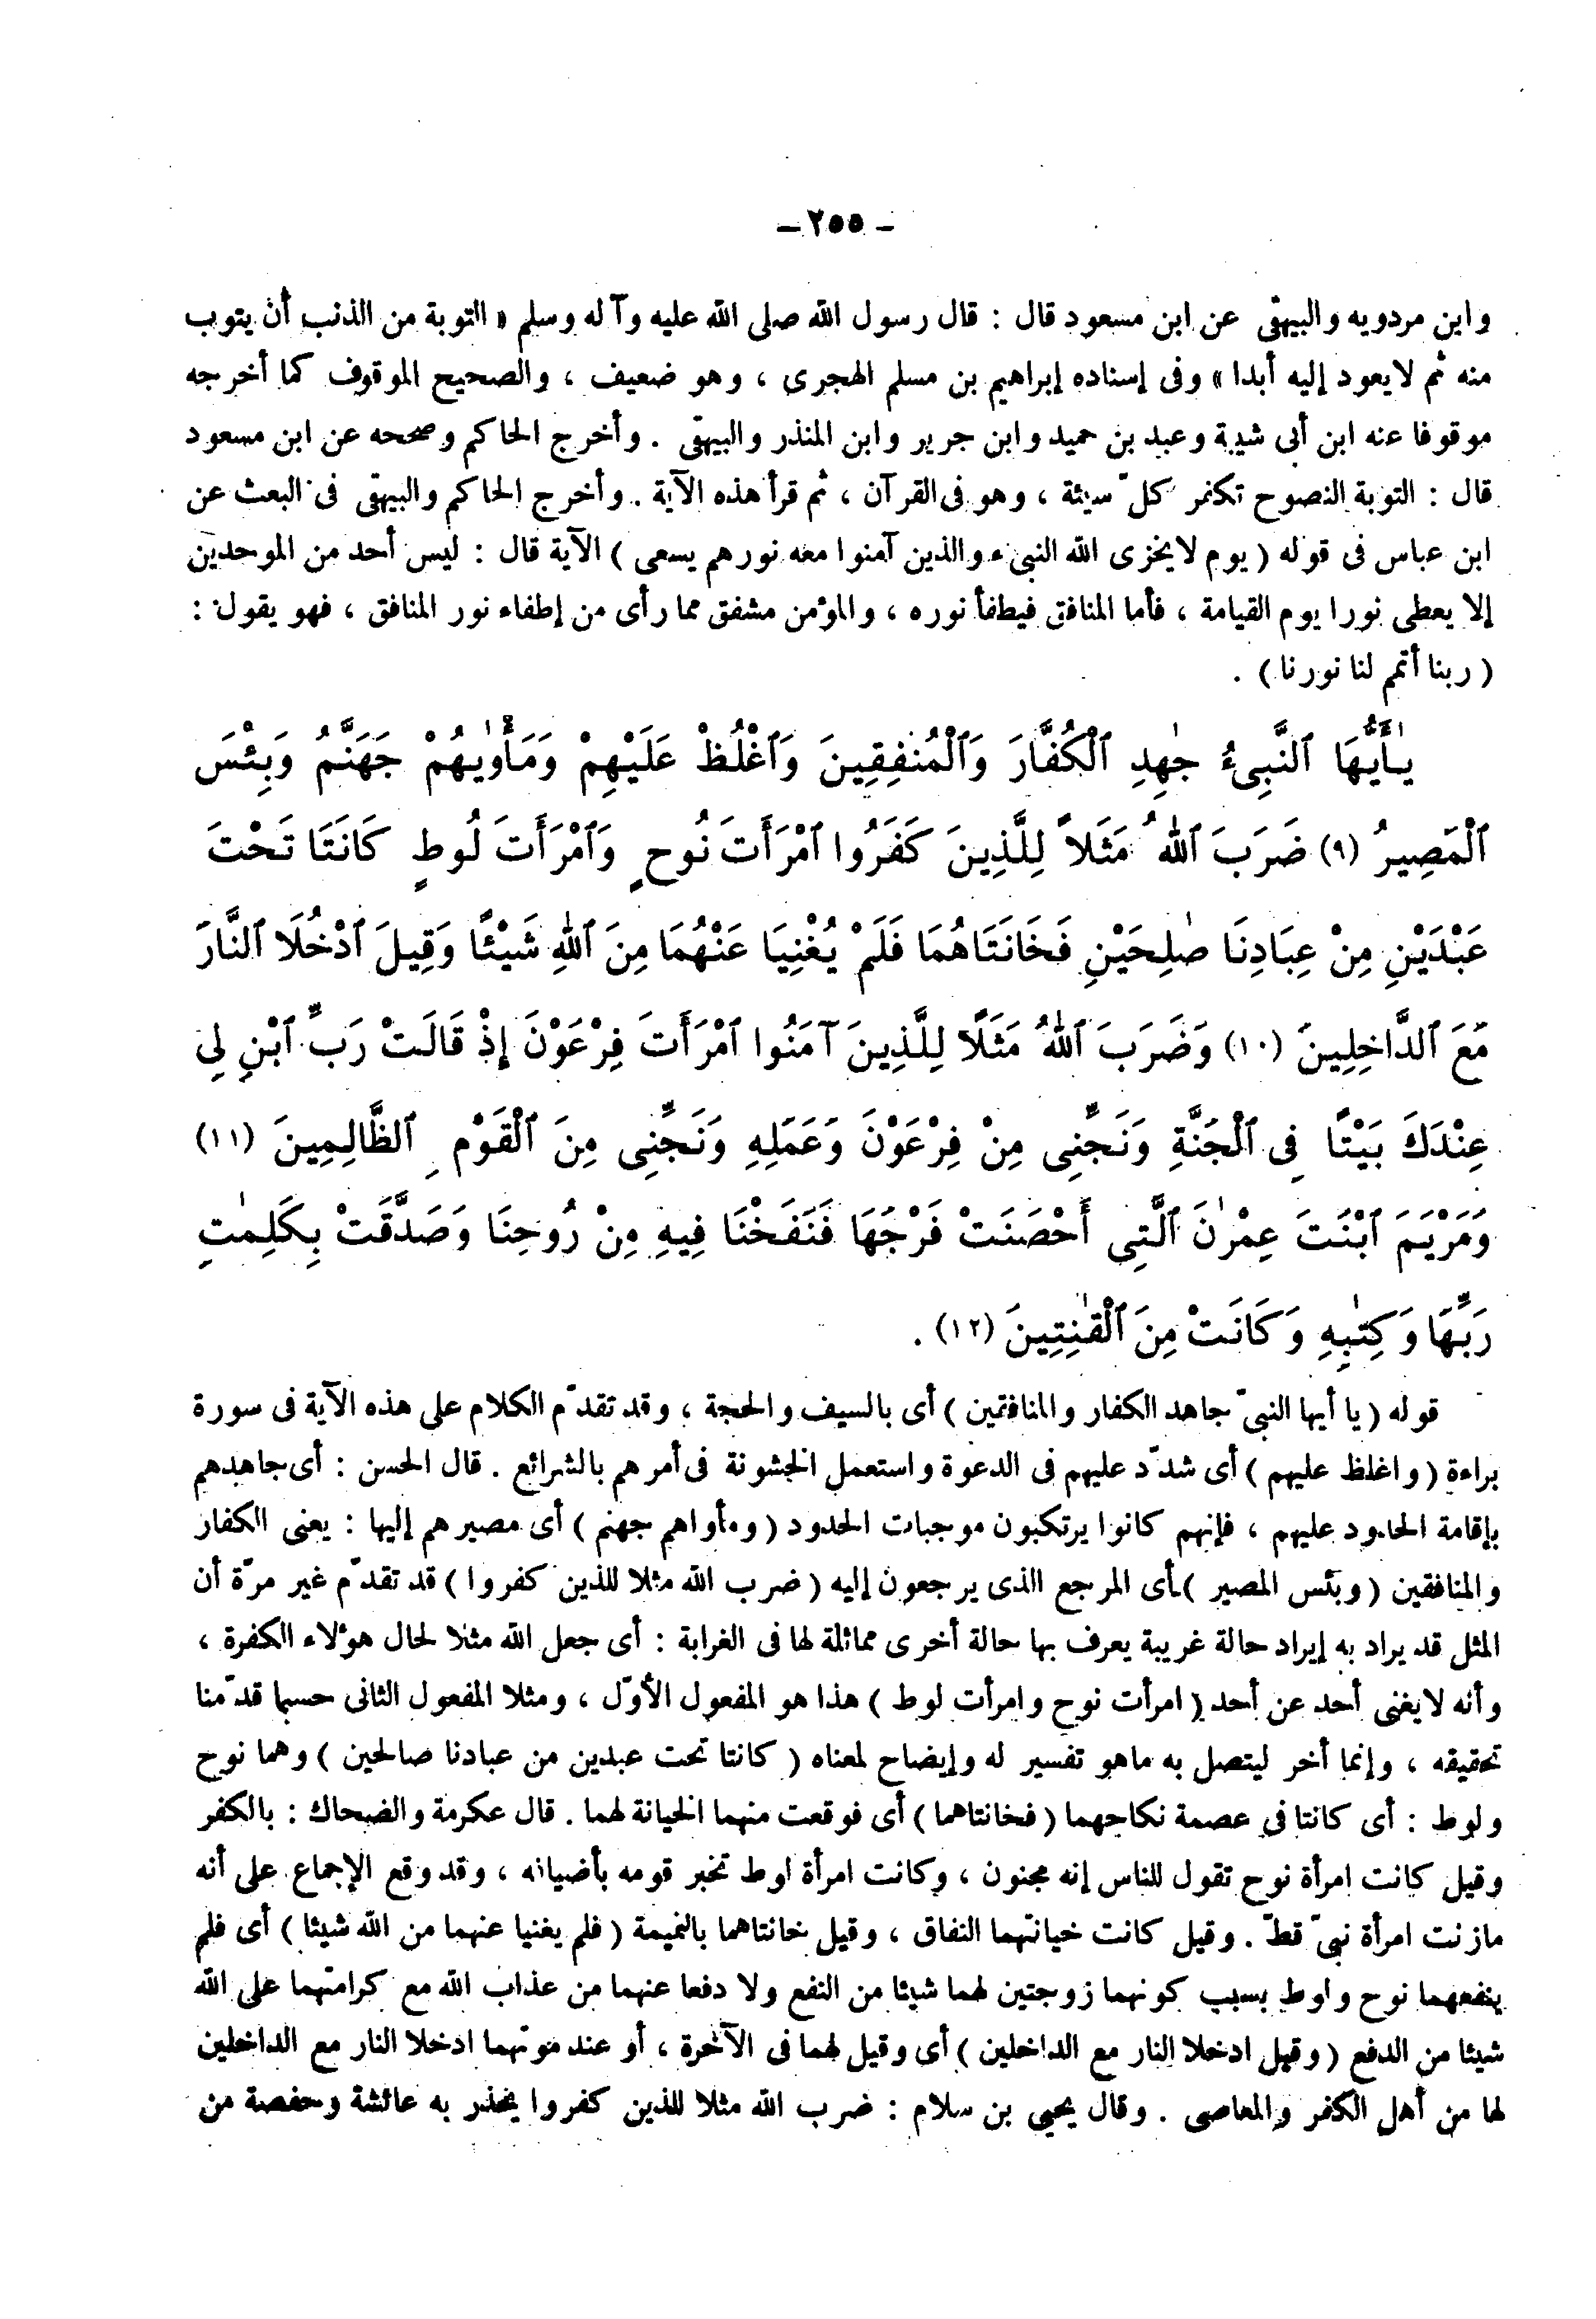 - ٢٥٥ -
وابن مردويه والبيهقى عن ابن مسعود قال : قال رسول الله صلى الله عليه وآله وسلم « التوبة من الذنب أن يتوب
منه ثم لا يعود إليه أبدا » وفى إسناده إبراهيم بن مسلم الهجرى ، وهو ضعيف ، والصحيح الموقوف كما أخرجه
موقوفا عنه ابن أبى شيبة وعبد بن حميد وابن جرير وابن المنذر والبيهقى . وأخرج الحاكم وصححه عن ابن مسعود
قال : التوبة النصوح تكفر كلّ سيئة ، وهو فى القرآن ، ثم قرأ هذه الآية . وأخرج الحاكم والبيهقى فى البعث عن
ابن عباس فى قوله ( يوم لا يخزى الله النبىء والذين آمنوا معه نورهم يسعى ) الآية قال : ليس أحد من الموحدين
إلا يعطى نورا يوم القيامة ، فأما المنافق فيطفأ نوره ، والمؤمن مشفق مما رأى من إطفاء نور المنافق ، فهو يقول :
( ربنا أتمم لنا نورنا ) .
يٰأَيُّهَا ٱلنَّبِىءُ جٰهِدِ ٱلْكُفَّارَ وَٱلْمُنٰفِقِينَ وَٱغْلُظْ عَلَيْهِمْ وَمَأْوٰيهُمْ جَهَنَّمُ وَبِئْسَ
ٱلْمَصِيرُ (٩) ضَرَبَ ٱللهُ مَثَلاً لِلَّذِينَ كَفَرُوا ٱمْرَأَتَ نُوحٍ وَٱمْرَأَتَ لُوطٍ كَانَتَا تَحْتَ
عَبْدَيْنِ مِنْ عِبَادِنَا صٰلِحَيْنِ فَخَانَتَاهُمَا فَلَمْ يُغْنِيَا عَنْهُمَا مِنَ ٱللهِ شَيْئًا وَقِيلَ ٱدْخُلَا ٱلنَّارَ
مَعَ ٱلدَّاخِلِينَ (١٠) وَضَرَبَ ٱللهُ مَثَلًا لِلَّذِينَ آمَنُوا ٱمْرَأَتَ فِرْعَوْنَ إِذْ قَالَتْ رَبِّ ٱبْنِ لِى
عِنْدَكَ بَيْتًا فِى ٱلْجَنَّةِ وَنَجِّنِى مِنْ فِرْعَوْنَ وَعَمَلِهِ وَنَجِّنِى مِنَ ٱلْقَوْمِ ٱلظَّالِمِينَ (١١)
وَمَرْيَمَ ٱبْنَتَ عِمْرٰنَ ٱلَّتِى أَحْصَنَتْ فَرْجَهَا فَنَفَخْنَا فِيهِ مِنْ رُوحِنَا وَصَدَّقَتْ بِكَلِمٰتِ
رَبِّهَا وَكِتٰبِهِ وَكَانَتْ مِنَ ٱلْقٰنِتِينَ (١٢) .
قوله ( يا أيها النبىّ جاهد الكفار والمنافقين ) أى بالسيف والحجة ، وقد تقدّم الكلام على هذه الآية فى سورة
براءة ( واغلظ عليهم ) أى شدّد عليهم فى الدعوة واستعمل الخشونة فى أمرهم بالشرائع . قال الحسن : أى جاهدهم
بإقامة الحدود عليهم ، فإنهم كانوا يرتكبون موجبات الحدود ( ومأواهم جهنم ) أى مصيرهم إليها : يعنى الكفار
والمنافقين ( وبئس المصير ) أى المرجع الذى يرجعون إليه ( ضرب الله مثلا للذين كفروا ) قد تقدّم غير مرّة أن
المثل قد يراد به إيراد حالة غريبة يعرف بها حالة أخرى مماثلة لها فى الغرابة : أى جعل الله مثلا لحال هؤلاء الكفرة ،
وأنه لا يغنى أحد عن أحد ( امرأت نوح وامرأت لوط ) هذا هو المفعول الأوّل ، ومثلا المفعول الثانى حسبما قدّمنا
تحقيقه ، وإنما أخر ليتصل به ماهو تفسير له وإيضاح لمعناه ( كانتا تحت عبدين من عبادنا صالحين ) وهما نوح
ولوط : أى كانتا فى عصمة نكاحهما ( فخانتاهما ) أى فوقعت منهما الخيانة لهما . قال عكرمة والضحاك : بالكفر
وقيل كانت امرأة نوح تقول للناس إنه مجنون ، وكانت امرأة لوط تخبر قومه بأضيافه ، وقد وقع الإجماع على أنه
مازنت امرأة نبىّ قطّ . وقيل كانت خيانتهما النفاق ، وقيل خانتاهما بالنميمة ( فلم يغنيا عنهما من الله شيئا ) أى فلم
ينفعهما نوح ولوط بسبب كونهما زوجتين لهما شيئا من النفع ولا دفعا عنهما من عذاب الله مع كرامتهما على الله
شيئا من الدفع ( وقيل ادخلا النار مع الداخلين ) أى وقيل لهما فى الآخرة ، أو عند موتهما ادخلا النار مع الداخلين
لها من أهل الكفر والمعاصى . وقال يحيى بن سلام : ضرب الله مثلا للذين كفروا يحذر به عائشة وحفصة من